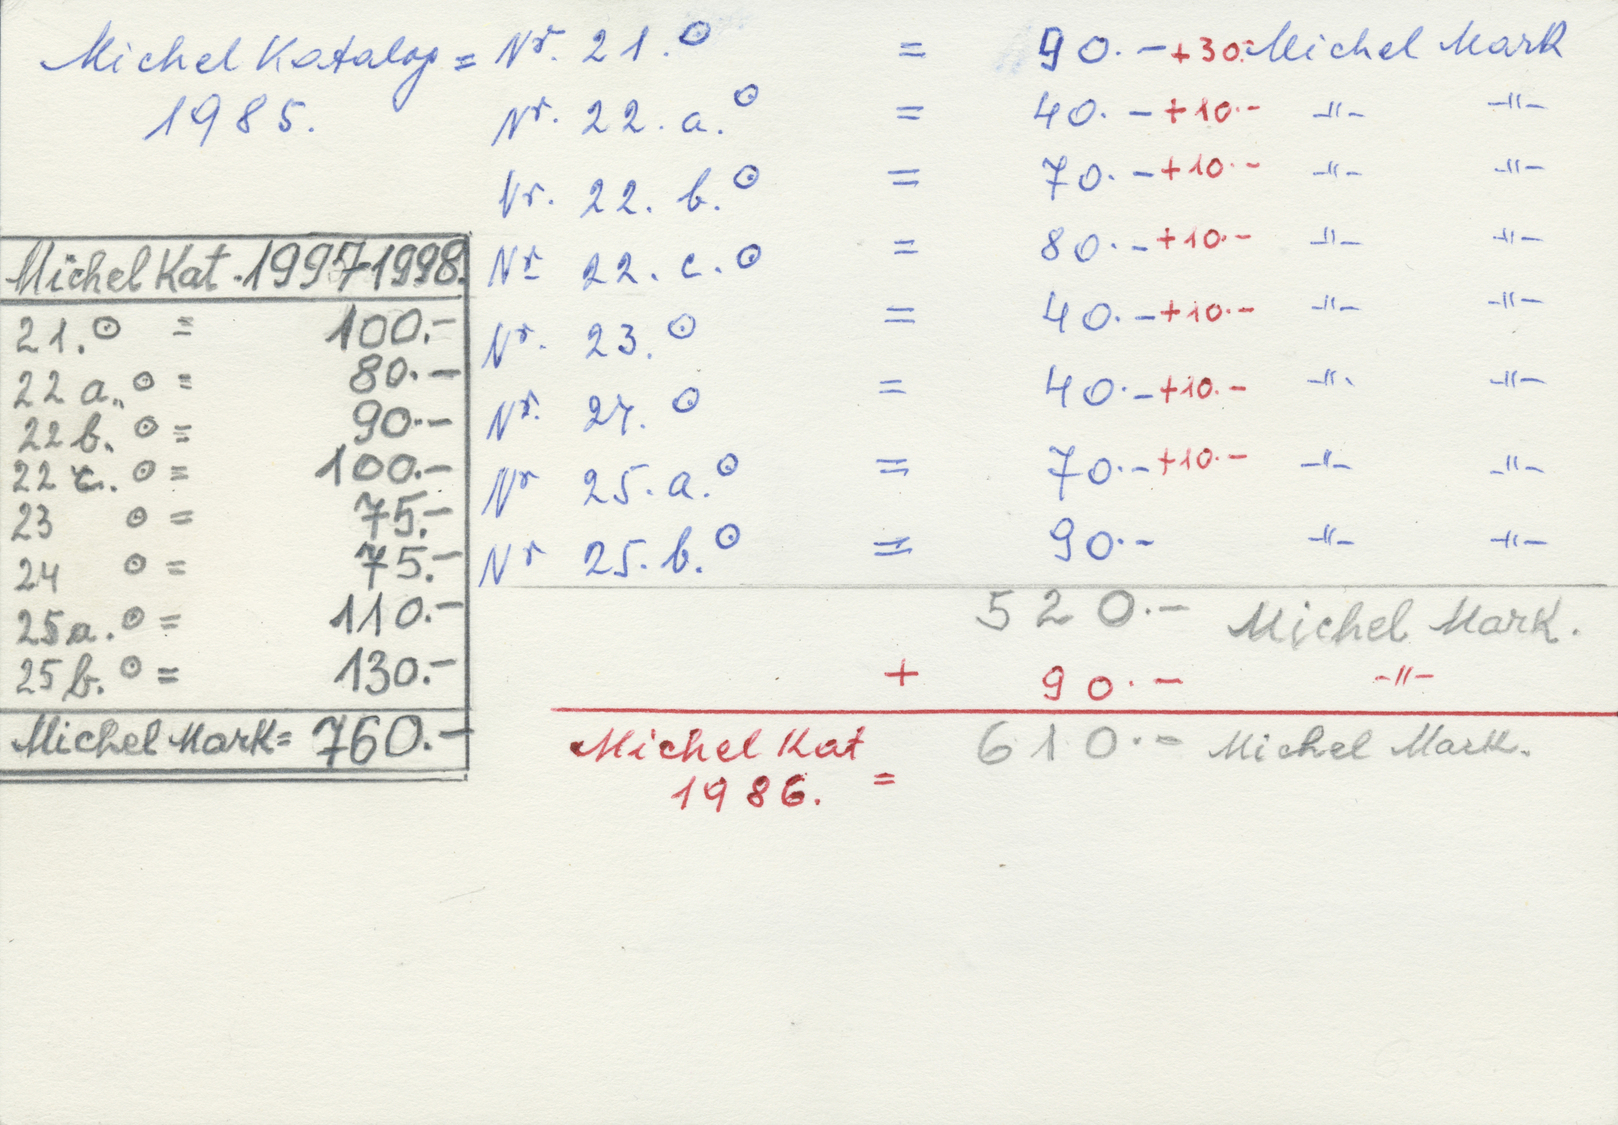 Michel Katalog = Nr. 21. ⊙ = 90.- +30.- Michel Mark
1985. Nr. 22. a. ⊙ = 40.- +10.- -"- -"-
Nr. 22. b. ⊙ = 70.- +10.- -"- -"-
Nr 22. c. ⊙ = 80.- +10.- -"- -"-
Nr. 23. ⊙ = 40.- +10.- -"- -"-
Nr. 24. ⊙ = 40.- +10.- -"- -"-
Nr 25. a. ⊙ = 70.- +10.- -"- -"-
Nr 25. b. ⊙ = 90.- -"- -"-
520.- Michel Mark.
+ 90.- -"-
Michel Kat 610.- Michel Mark.
1986. =
Michel Kat. 1997-1998.
21. ⊙ = 100.-
22 a. ⊙ = 80.-
22 b. ⊙ = 90.-
22 c. ⊙ = 100.-
23 ⊙ = 75.-
24 ⊙ = 75.-
25 a. ⊙ = 110.-
25 b. ⊙ = 130.-
Michel Mark = 760.-